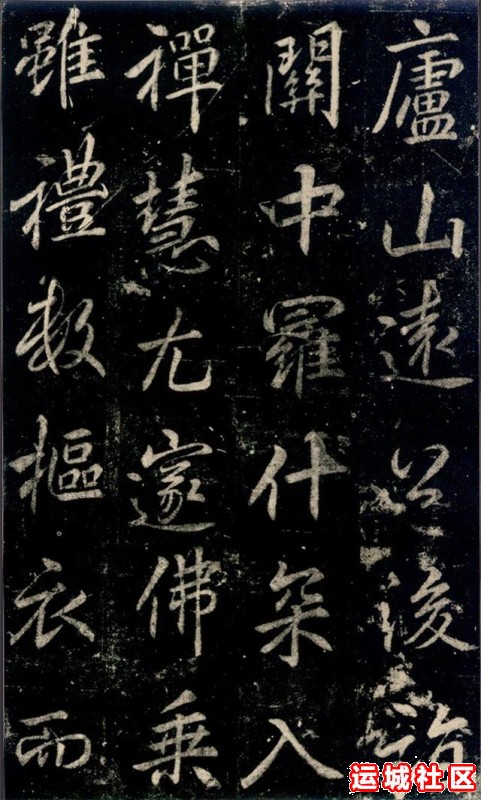 廬山遠公後詣
關中羅什架入
禪慧尤邃佛乗
雖禮數摳衣而
运城社区